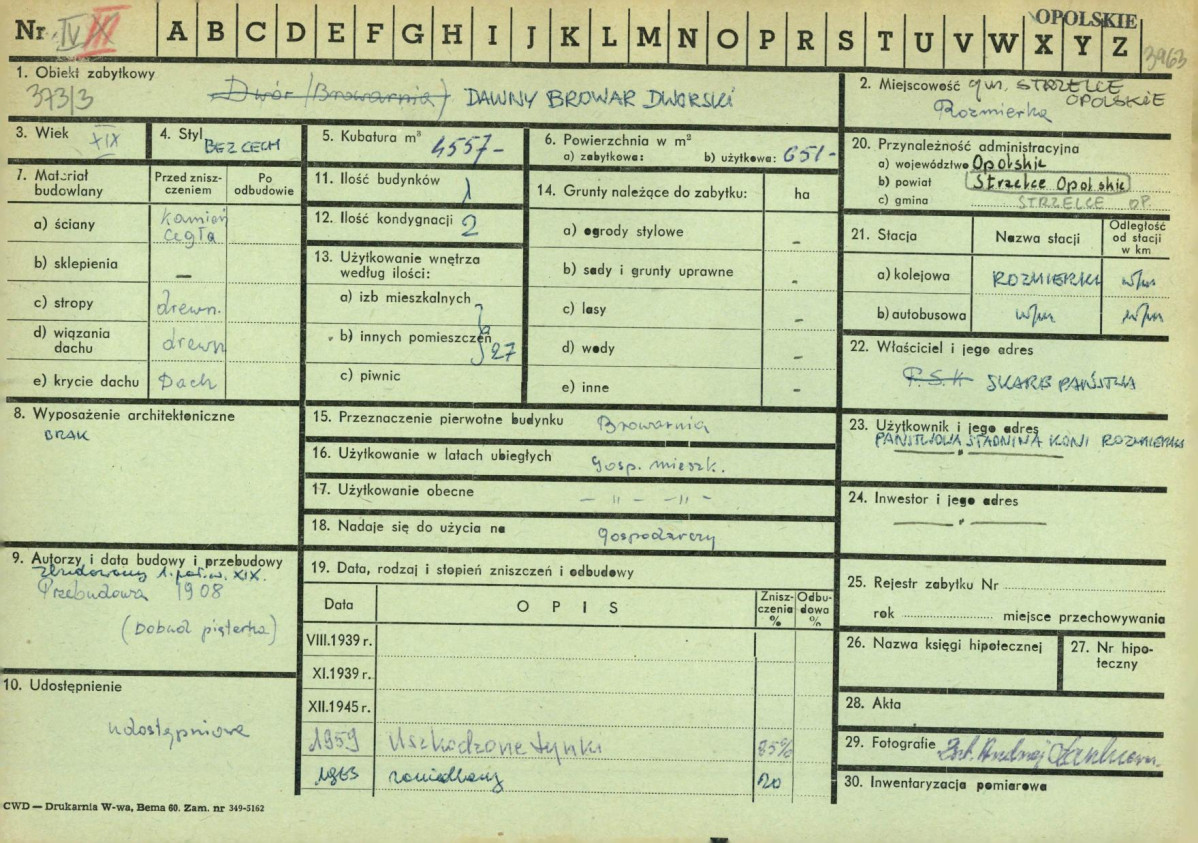 Nr IV III A B C D E F G H I J K L M N O P R S T U V W X Y Z
OPOLSKIE
3963
1. Obiekt zabytkowy
373/3
Dwór (Browarnia) DAWNY BROWAR DWORSKI
2. Miejscowość gm. STRZELCE
OPOLSKIE
Rozmierka
3. Wiek
XIX
4. Styl
BEZ CECH
5. Kubatura m³ 4557-
6. Powierzchnia w m²
a) zabytkowa: b) użytkowa: 651-
20. Przynależność administracyjna
a) województwo Opolskie
b) powiat Strzelce Opolskie
c) gmina STRZELCE OP.
7. Materiał budowlany
Przed zniszczeniem
Po odbudowie
a) ściany kamień
cegła
b) sklepienia —
c) stropy drewn.
d) wiązania dachu drewn
e) krycie dachu Dach
11. Ilość budynków 1
12. Ilość kondygnacji 2
13. Użytkowanie wnętrza według ilości:
a) izb mieszkalnych
b) innych pomieszczeń 27
c) piwnic
14. Grunty należące do zabytku: ha
a) ogrody stylowe -
b) sady i grunty uprawne -
c) lasy -
d) wody -
e) inne -
21. Stacja
Nazwa stacji
Odległość od stacji w km
a) kolejowa ROZMIERKA w/m
b) autobusowa w/m w/m
22. Właściciel i jego adres
P.S.K SKARB PAŃSTWA
8. Wyposażenie architektoniczne
BRAK
15. Przeznaczenie pierwotne budynku Browarnia
16. Użytkowanie w latach ubiegłych gosp. mieszk.
17. Użytkowanie obecne - " - -"-
18. Nadaje się do użycia na gospodarczy
23. Użytkownik i jego adres
PAŃSTWOWA STADNINA KONI ROZMIERKA
— " —
24. Inwestor i jego adres
— " —
9. Autorzy i data budowy i przebudowy
zbudowany 1. poł. w. XIX.
Przebudowa 1908
(Dobud. pięterka)
19. Data, rodzaj i stopień zniszczeń i odbudowy
Data
O P I S
Zniszczenia %
Odbudowa %
VIII.1939 r.
XI.1939 r.
XII.1945 r.
1959 Uszkodzone tynki 35%
1963 zaniedbany 20
25. Rejestr zabytku Nr
rok miejsce przechowywania
26. Nazwa księgi hipotecznej
27. Nr hipoteczny
10. Udostępnienie
udostępniona
28. Akta
29. Fotografie
30. Inwentaryzacja pomiarowa
CWD — Drukarnia W-wa, Bema 60. Zam. nr 349-5162